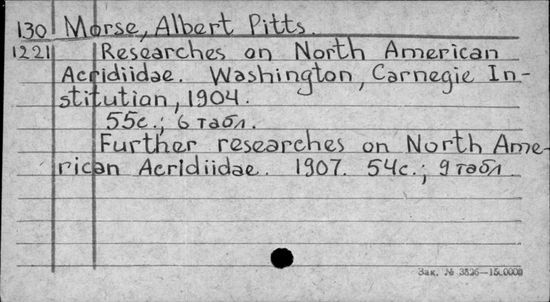 130 Morse, Albert Pitts.
1221 Researches on North American
Acridiidae. Washington, Carnegie In-
stitution, 1904.
55с.; 6 табл.
Further researches on North Ame-
rican Acridiidae. 1907. 54с.; 9 табл.
Зак. № 3826—15.0000